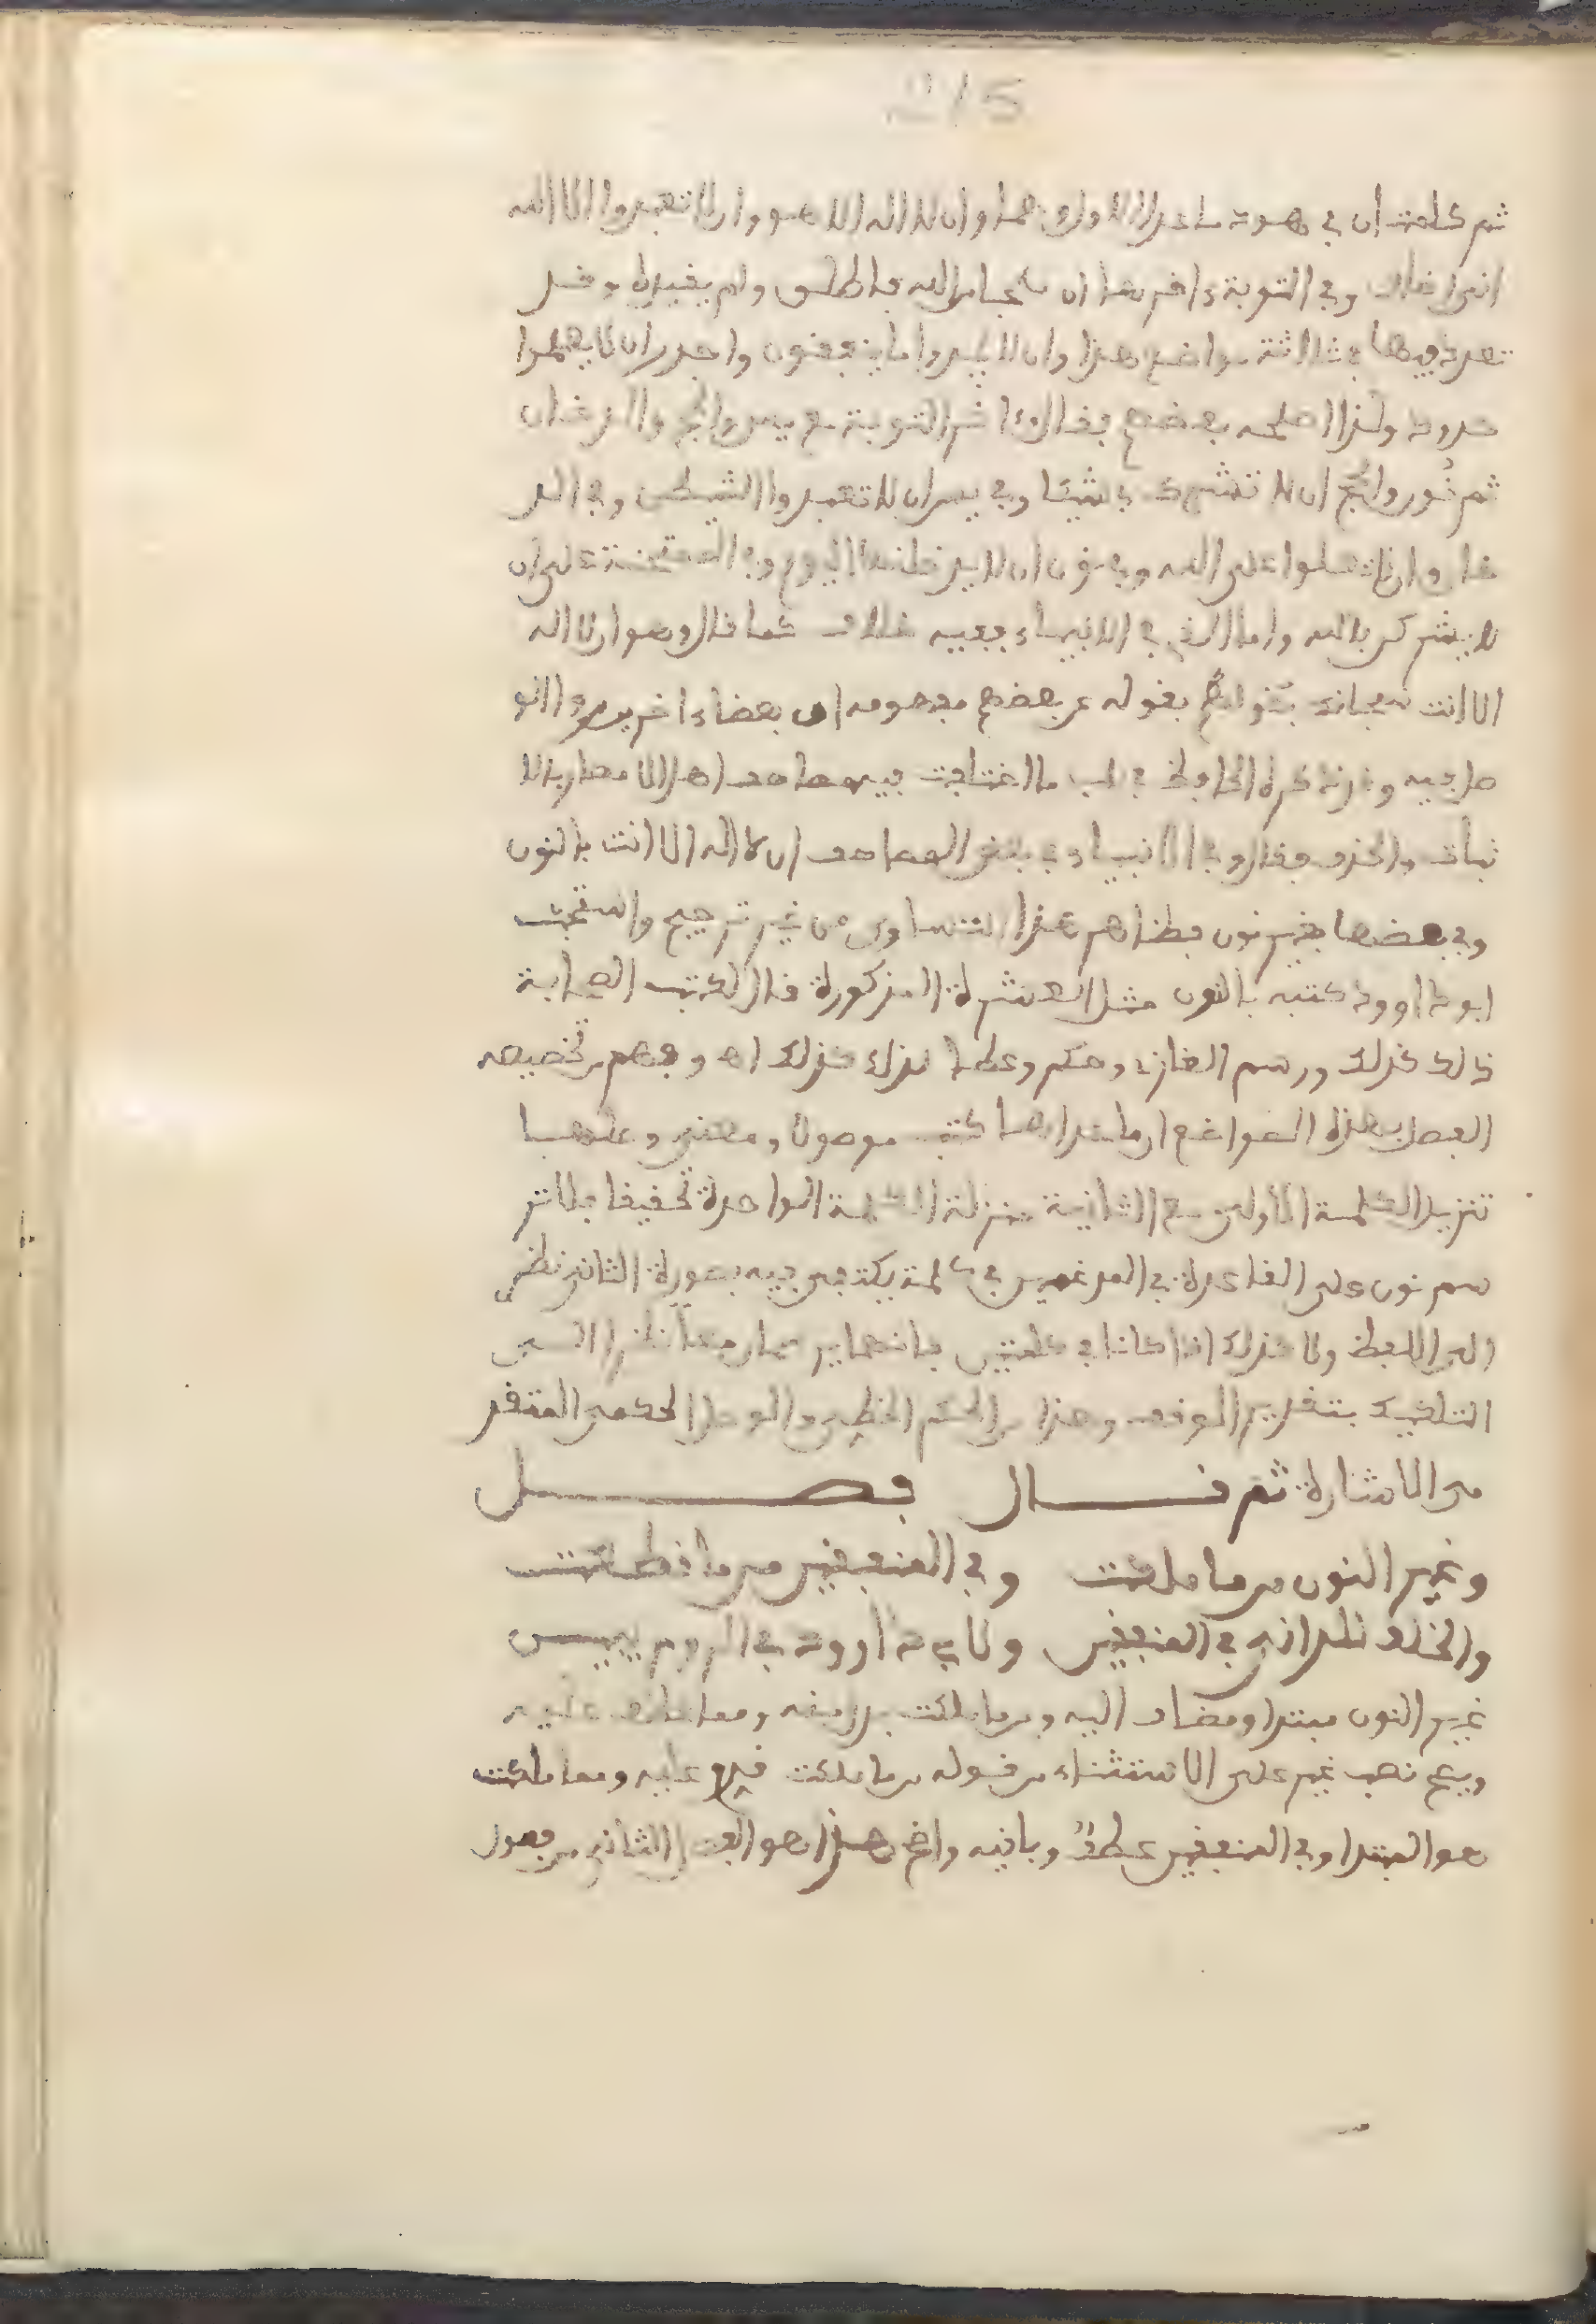 215
ثم كلمتان في هود ما عدا الاولى وهما وان لا اله الا هو وان لا تعبدوا الا الله
اني اخاف وفي التوبة ءاخرها ان ملجا من الله فاطلق ولم يقيده وقد
تعدد فيها ثلاثة مواضع هذا وان لا يجدوا ما ينفقون واجدر ان لا يعلموا
حدود ولذا اصلحه بعضهم فقال وءاخر التوبة مع يس والحج والدخان
ثم نون والحج ان لا تشرك بي شيئا وفي يس ان لا تعبدوا الشيطن وفي الد
خان وان لا تعلوا على الله وفي نون ان لا يدخلنها اليوم وفي الممتحنة على ان
لا يشركن بالله واما الذي في الانبياء ففيه خلاف كما قال وهو ان لا اله
الا انت سبحانك بقوله عن بعضهم مفهومه ان بعضا ءاخر يروا الو
صل فيه وقد ذكره الحافظ في باب ما اختلفت فيه مصاحف اهل الامصار بالا
ثبات والحذف فقال وفي الانبياء في بعض المصاحف ان لا اله الا انت بالنون
وفي بعضها بغير نون فظاهر هذا التساوي من غير ترجيح واستحب
ابو داوود كتبه بالنون مثل العشرة المذكورة قال لكتب الصحابة
ذلك كذلك ورسم الغازي وحكم وعطا لذلك كذلك اه وفهم من تخصيصه
الفصل بهذه المواضع ان ما عداها كتب موصولا ومعنى وصلها
تنزيل الكلمة الاولى مع الثانية منزلة الكلمة الواحدة تحقيقا فلا تر
سم نون على القاعدة في المدغمين في كلمة يكتفى فيه بصورة الثاني نظرا
الى اللفظ ولا كذلك اذا كانا في كلمتين
التلفيك بتقدير الوقف وهذا من الحكم الخطي والوصل الحكمي المتقد
من الاشارة ثم قال فصل
وغير النون من ما ملكت وفي المنفقين من ما قطعت
والخلف للداني في المنفقين ولابي داوود في الروم يبين
غير النون مبتدا ومضاف اليه ومن ما ملكت وما عطف عليه
ويصح نصب غير على الاستثناء من قوله من ما ملكت عليه وما ملكت
هو المبتدا وفي المنفقين عطف وباقيه واضح هذا هو الفصل الثاني من فصول